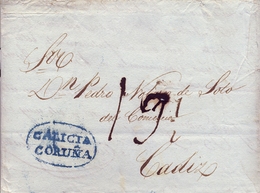 Sor
Dn Pedro de Soto
del Comercio
Cadiz
GALICIA
CORUÑA